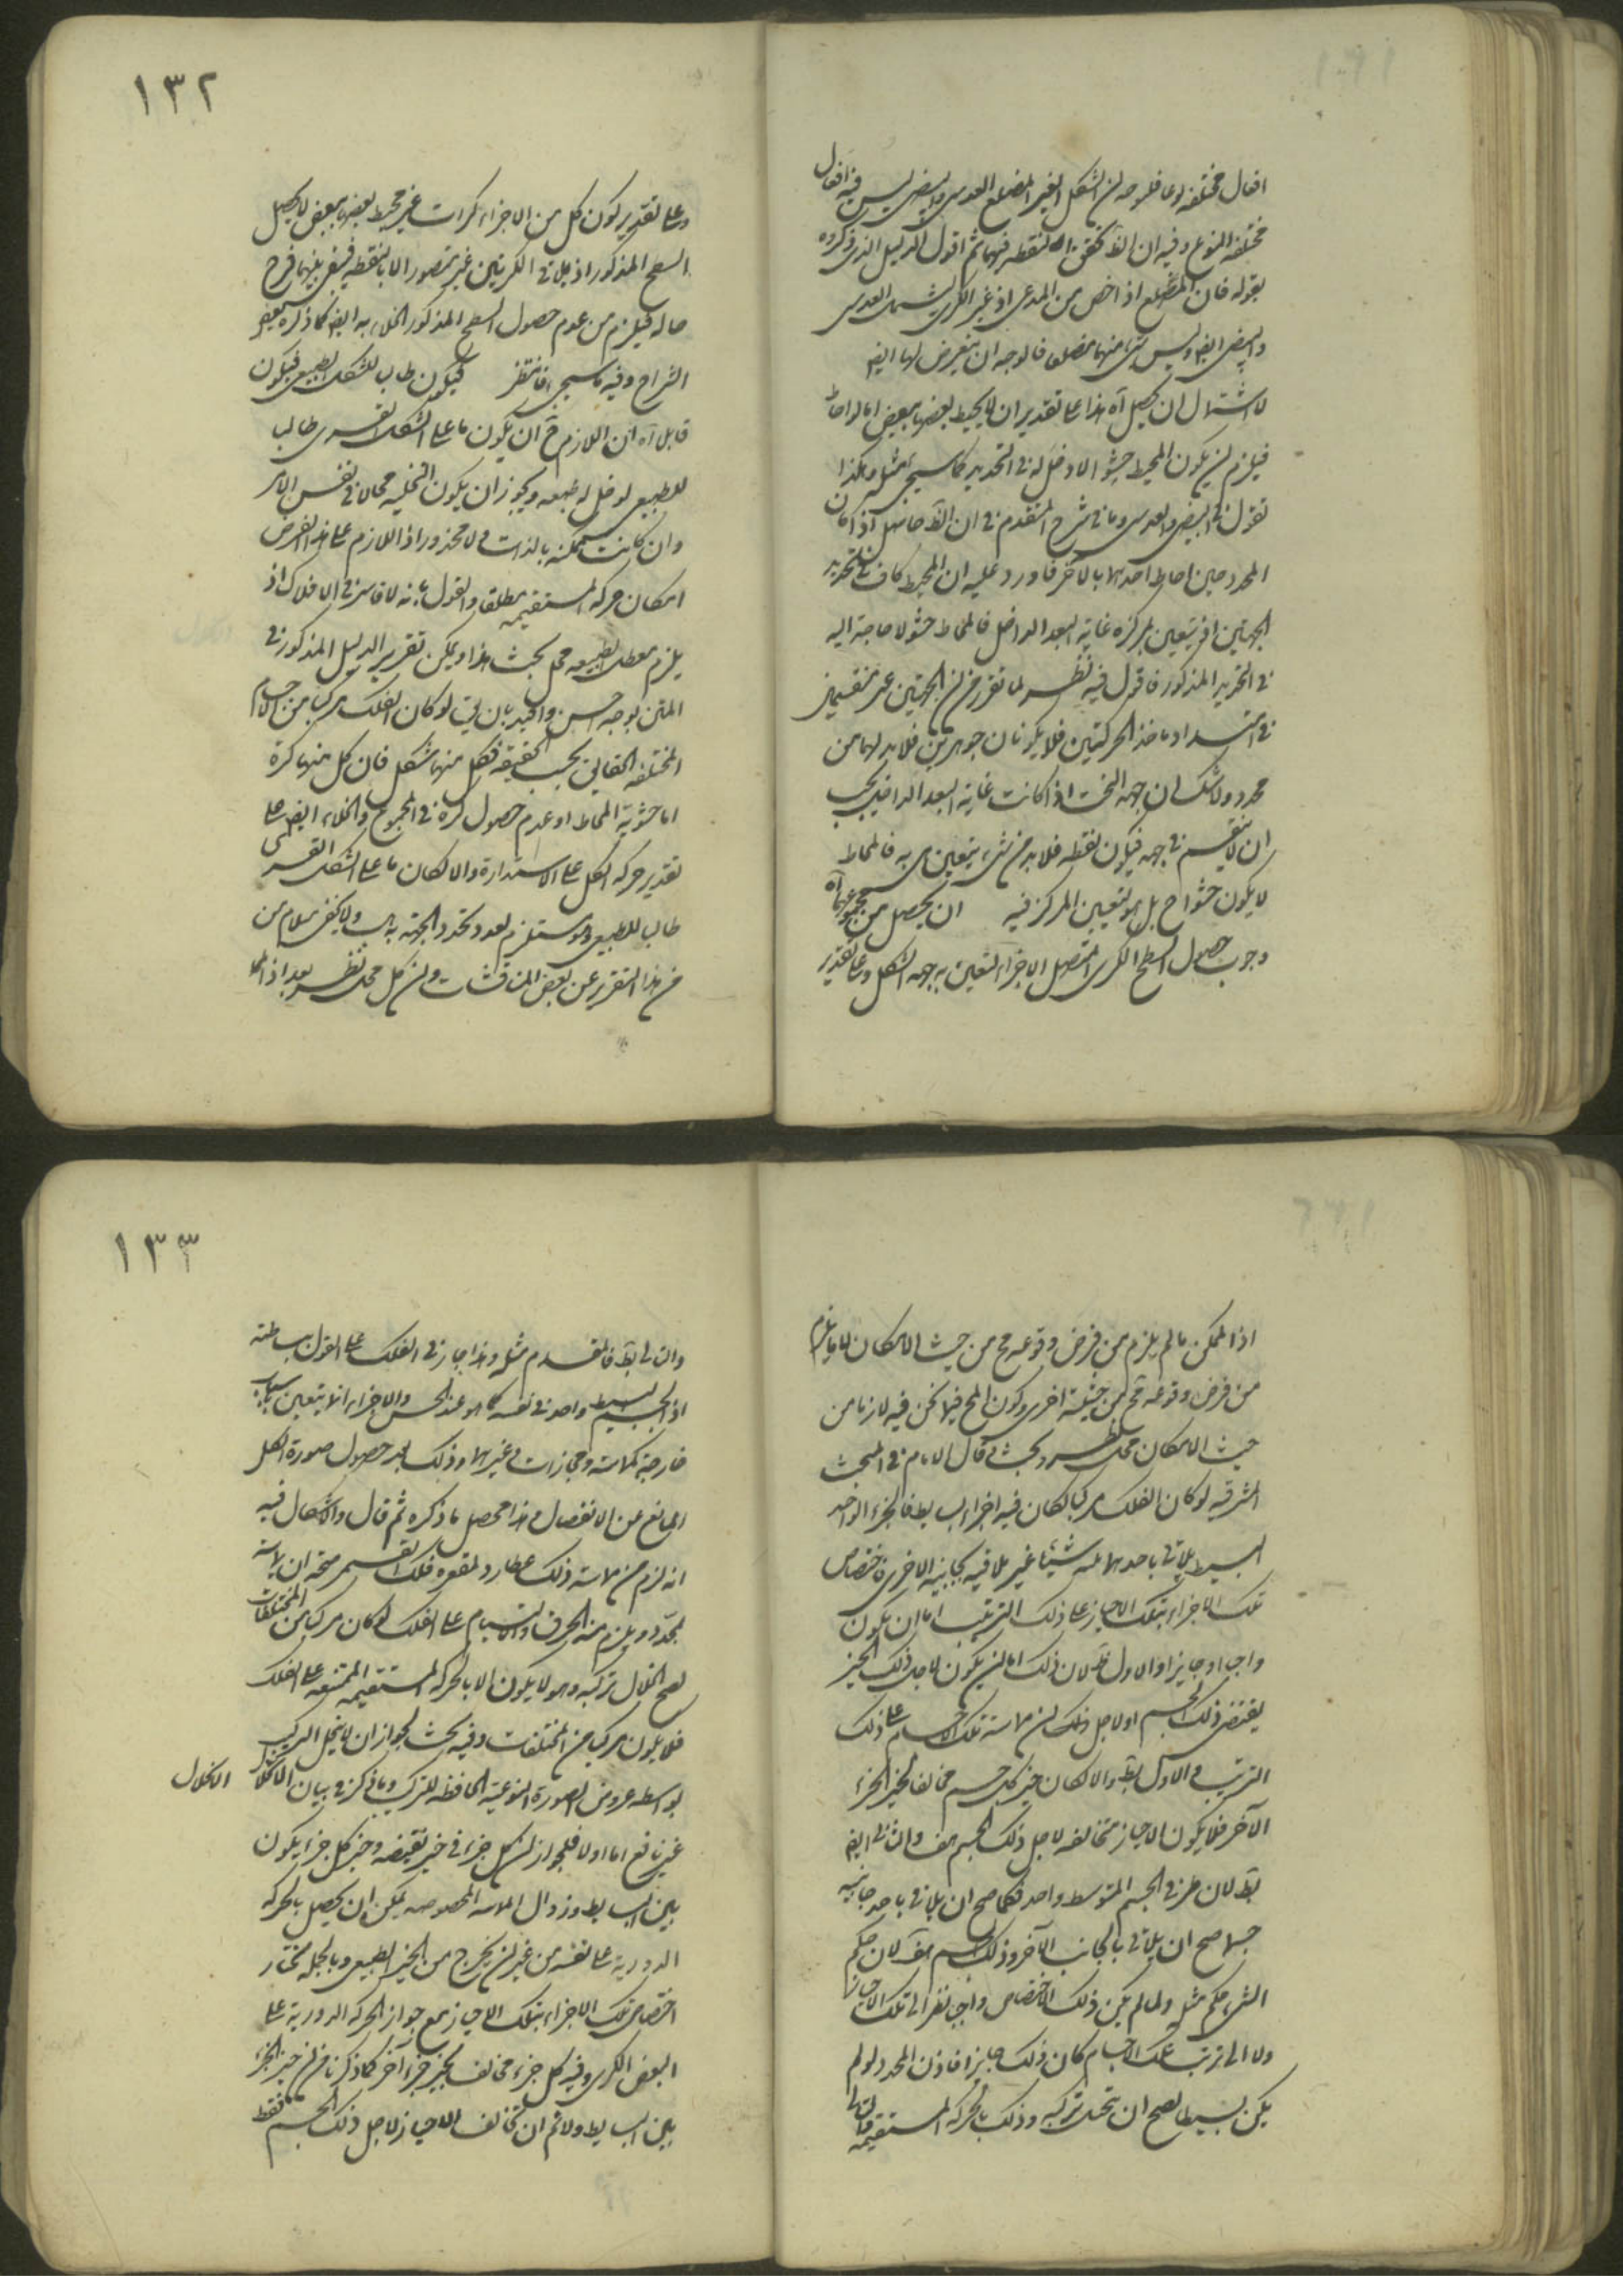 افعال مختلفه وما قلو حه ان الشكل الغير المضلع العدسى والبيضى ليس فيه افعال
مختلفه النوع وفيه ان الظ تحقق النقطه فيهما ثم اقول الدليل الذى ذكروه
بقوله فان المضلع اذ اخص من المدعى اذ غير الكرى يشمل العدسى
والبيضى ايضا وليس شئ منهما مضلعا فالوجه ان يتعرض لها ايضا
لاشتمال ان يحصل آه هذا على تقدير ان لا يحيط بعضها ببعض اما لو احاط
فيلزم ان يكون المحيط حشوا لا دخل له فى التحديد كما سيجئ مثله وهكذا
نقول فى البيضى والعدسى وما فى شرح المتقدم فى ان الظ آه اذا كان
المحدد حين احاط احدهما بالآخر فاورد عليه ان المحيط كاف فى تحديد
الجهتين اذ يتعين بمركزه غاية البعد الداخل فالمحاط حشو لا حاجة اليه
فى التحديد المذكور فاقول فيه نظر لما تقرر من ان الجهتين غير منقسمين
فى امتداد ماخذ الحركتين فلا يكونان جوهرين فلا بد لهما من
محدد ولا شك ان جهة التحت اذا كانت غاية البعد الداخل يجب
ان لا ينقسم فى جهه فيكون نقطه فلا بد من شئ يتعين هى به فالمحاط
لا يكون حشوا ح بل هو لتعيين المركز فيه ان يحصل من مجموعهما آه
وجوب حصول السطح الكرى المتصل الاجزاء لتعين به جهه الشكل وعلى تقدير
١٣٢
وعلى تقدير كون كل من الاجزاء كرات غير محيط بعضها ببعض لا يحصل
السطح المذكور اذ تلاقى الكرتين غير متصور الا بالنقطه فيبقى بينهما فرج
خاليه فيلزم من عدم حصول السطح المذكور الخلاء به ايضا كما ذكره بعض
الشراح وفيه ما سيجئ فانتظر فيكون طالبا للشكل الطبيعى فيكون
قابل آه ان اللازم ح ان يكون ما على الشكل القسرى طالب
للطبيعى لو خلى له طبعه ويجوز ان يكون التخليه محالا فى نفس الامر
وان كانت ممكنه بالذات ولا محذور اذ اللازم على هذا الفرض
امكان حركه المستقيمه مطلقا والقول بانه لا قاسر فى الافلاك اذ
يلزم تعطل الطبيعه محل بحث هذا ويمكن تقرير الدليل المذكور فى
المتن بوجه احسن واجود بان يق لو كان الفلك مركبا من اجسام
المختلفه الحقايق بحسب الحقيقه فلكل منها شكل فان كل منها كرة
اما حشوية المحاط او عدم حصول كرة فى المجموع والخلاء ايضا على
تقدير حركه الكل على الاستدارة والا لكان ما على الشكل القسرى
طالب للطبيعى وهو مستلزم لعدم تحدد الجهة به ولا يخفى سلامة
من هذا التقرير عن بعض المناقشات وان كل محل نظر بعد اذ المحا
اذ الممكن ما لم يلزم من فرض وقوعه مح من حيث الامكان لا ما يلزم
من فرض وقوعه مح من حيثية اخرى وكون المح فيما نحن فيه لازما من
حيث الامكان محل نظر وبحث قال الامام فى المبحث
المشرقيه لو كان الفلك مركبا لكان فيه اجزاء بسايط فالجزء الواحد
البسيط يلاقى باحد جانبيه شيئا غير ملاقيه بجانبه الاخرى فاختصاص
تلك الاجزاء بتلك الاحياز على ذلك الترتيب اما ان يكون
واجبا او جايزا والاول بط لان ذلك اما ان يكون لاجل ذلك الحيز
يقتضى ذلك الجسم او لاجل ذلك ان مماسة تلك الاجسام على ذلك
الترتيب والاول بط والا لكان حيز كل جسم مخالفا لحيز الجزء
الآخر فلا يكون الاحياز متخالفه لاجل ذلك الجسم هف والثانى ايضا
بط لان طرفى الجسم المتوسط واحد فكما صح ان يلاقى باحد جانبيه
جسما صح ان يلاقى بالجانب الآخر ذلك الجسم هف لان حكم
الشئ حكم مثله ولما لم يكن ذلك الاختصاص واجبا نظرا الى تلك الاحياز
ولا الى ترتيب تلك الاجسام كان ذلك جايزا فاذن المحدد لو لم
يكن بسيطا لصح ان يتحلل تركيبه وذلك بالحركه المستقيمه
١٣٣
والتالى بط فالمقدم مثله وهذا جاز فى الفلك على القول ببساطته
اذ الجسم البسيط واحد فى نفسه كما هو عند الحس والاجزاء انما يتعين باسباب
خارجية كمماسة ومجازات وغيرها وذلك بعد حصول صورة الكل
المانع من الانفصال هذا محصل ما ذكره ثم قال والاشكال فيه
انه لزم من مماسة فلك عطارد لمقعر فلك القمر صحة ان يماسه
بمحدبه ويلزم منه الخرق والالتيام على الفلك لو كان مركبا من المختلفات
لصح انحلال تركيبه وهو لا يكون الا بالحركه المستقيمه الممتنعه على الفلك
فلا يكون مركبا من المختلفات وفيه بحث لجواز ان لا ينحل التركيب
بواسطه عروض الصورة النوعية الحافظه للتركيب وما ذكر فى بيان الانحلال
الانحلال
غير نافع اما اولا فلجواز ان كل جزء فى حيز يقتضيه وحيز كل جزء يكون
بين البسايط وزوال المماسه المخصوصه يمكن ان يحصل بالحركه
الدورية على نفسه من غير ان يخرج من الحيز الطبيعى وبالجمله نختار
اختصاص تلك الاجزاء بتلك الاحياز مع جواز الحركه الدورية على
البعض الكرى وفيه كل جزء مخالف لحيز جزء آخر كما ذكرنا من ان حيز الجزء
بين البسايط ولا ثم ان تخالف الاحياز لاجل ذلك الجسم فقط